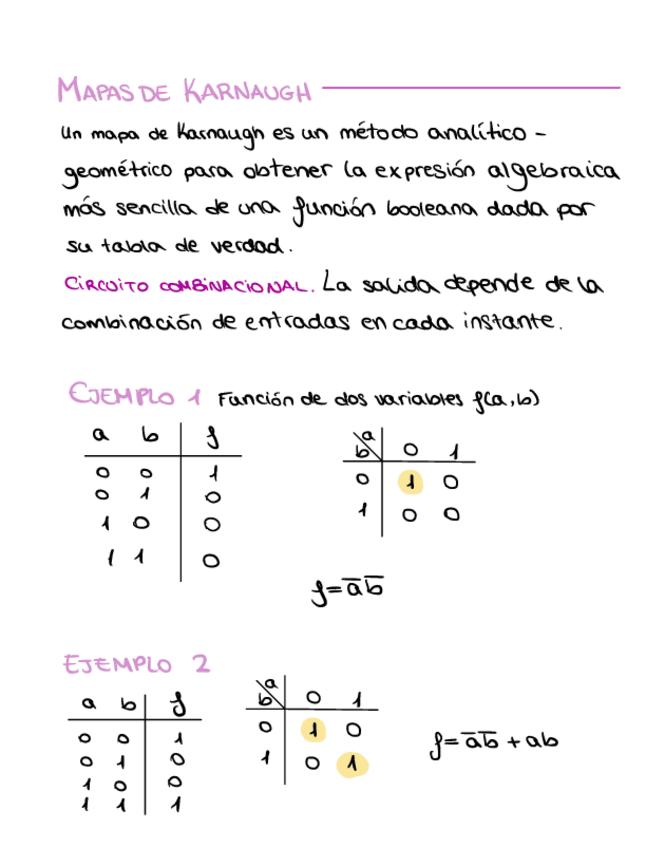 MAPAS DE KARNAUGH
Un mapa de Karnaugh es un método analítico -
geométrico para obtener la expresión algebraica
más sencilla de una función booleana dada por
su tabla de verdad.
CIRCUITO COMBINACIONAL. La salida depende de la
combinación de entradas en cada instante.
EJEMPLO 1 Función de dos variables f(a,b)
a b f
0 0 1
0 1 0
1 0 0
1 1 0
a
b 0 1
0 1 0
1 0 0
f = a̅b̅
EJEMPLO 2
a b f
0 0 1
0 1 0
1 0 0
1 1 1
a
b 0 1
0 1 0
1 0 1
f = a̅b̅ + ab